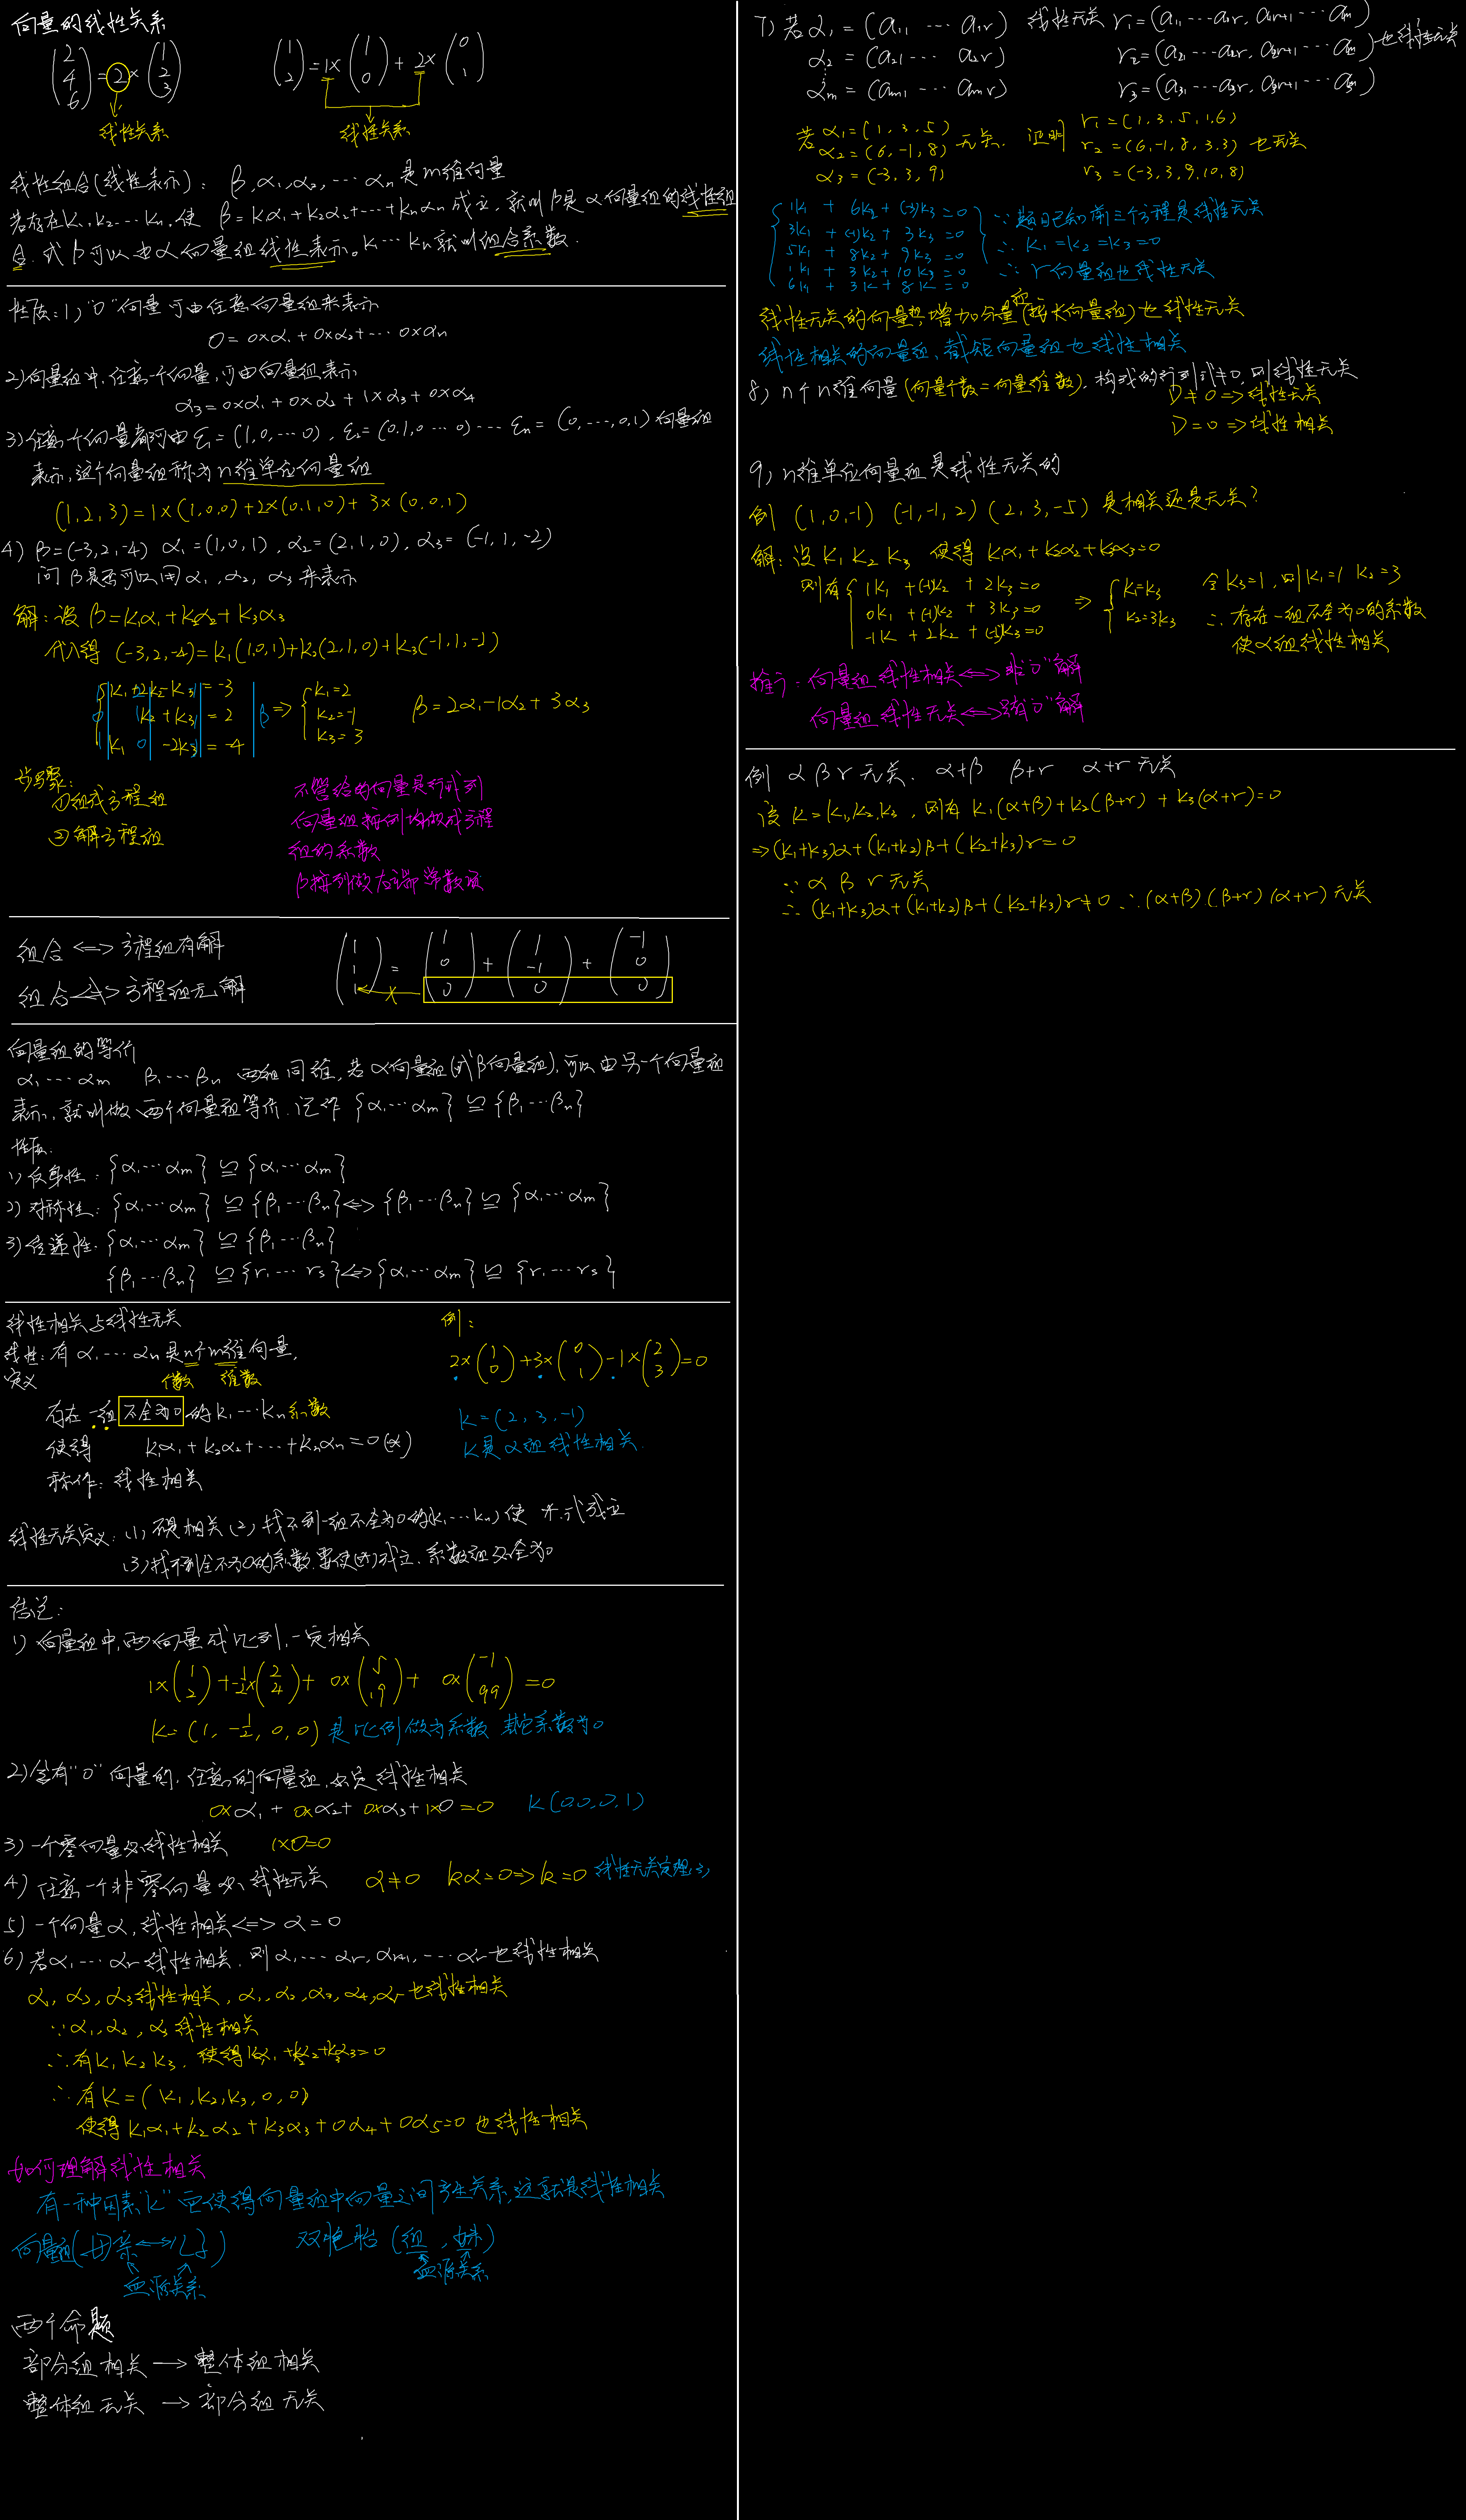 向量的线性关系
(2 4 6) = 2 × (1 2 3)
线性关系
(1 2) = 1× (1 0) + 2× (0 1)
线性关系
线性组合(线性表示): β, α₁, α₂, … αₙ 是m维向量
若存在k₁, k₂… kₙ, 使 β = kα₁ + k₂α₂ + … + kₙαₙ 成立, 就叫β是α向量组的线性组
合. 或β可以由α向量组线性表示。k₁ … kₙ就叫组合系数.
性质: 1) "0"向量可由任意向量组来表示
0 = 0×α₁ + 0×α₂ + … 0×αₙ
2) 向量组中, 任意一个向量, 可由向量组表示
α₃ = 0×α₁ + 0×α₂ + 1×α₃ + 0×α₄
3) 任意一个向量都可由 ε₁ = (1, 0, … 0), ε₂ = (0, 1, 0 … 0) … εₙ = (0, …, 0, 1) 向量组
表示, 这个向量组称为n维单位向量组
(1, 2, 3) = 1×(1, 0, 0) + 2×(0, 1, 0) + 3×(0, 0, 1)
4) β = (-3, 2, -4) α₁ = (1, 0, 1), α₂ = (2, 1, 0), α₃ = (-1, 1, -2)
问β是否可以用α₁, α₂, α₃来表示
解: 设β = k₁α₁ + k₂α₂ + k₃α₃
代入得 (-3, 2, -4) = k₁(1, 0, 1) + k₂(2, 1, 0) + k₃(-1, 1, -2)
k₁ + 2k₂ - k₃ = -3
0 1k₂ + k₃ = 2 β ⇒ k₁ = 2 k₂ = -1 k₃ = 3 β = 2α₁ - 1α₂ + 3α₃
k₁ 0 -2k₃ = -4
步骤:
①组成方程组
②解方程组
不管给的向量是行或列
向量组按列均做成方程
组的系数
β按列做右端常数项
组合 <=> 方程组有解
组合 <≠> 方程组无解
(1 1 1) = (1 0 0) + (1 -1 0) + (-1 0 0)
×
向量组的等价
α₁ … αₘ β₁ … βₙ 两组同维, 若α向量组(或β向量组), 可以由另一个向量组
表示, 就叫做两个向量组等价. 记作 {α₁ … αₘ} ≌ {β₁ … βₙ}
性质.
1) 反身性: {α₁ … αₘ} ≌ {α₁ … αₘ}
2) 对称性: {α₁ … αₘ} ≌ {β₁ … βₙ} <=> {β₁ … βₙ} ≌ {α₁ … αₘ}
3) 传递性. {α₁ … αₘ} ≌ {β₁ … βₙ}
{β₁ … βₙ} ≌ {r₁ … rₛ} <=> {α₁ … αₘ} ≌ {r₁ … rₛ}
线性相关与线性无关
线性: 有α₁ … αₙ是n个m维向量,
定义 个数 维数
存在一组不全为0的k₁ … kₙ系数
使得 k₁α₁ + k₂α₂ + … + kₙαₙ = 0 (*)
称作: 线性相关
例:
2×(1 0) + 3×(0 1) - 1×(2 3) = 0
k = (2, 3, -1)
k是α组线性相关.
线性无关定义: (1) 不是相关 (2) 找不到一组不全为0的(k₁ … kₙ) 使 *式成立
(3) 找不到全不为0的系数, 要使(*)成立, 系数组必全为0
结论:
1) 向量组中, 两向量成比列, 一定相关
1×(1 2) + -½×(2 4) + 0×(5 19) + 0×(-1 99) = 0
k = (1, -½, 0, 0) 是比例做为系数 其它系数为0
2) 含有"0"向量的, 任意的向量组, 必定线性相关
0×α₁ + 0×α₂ + 0×α₃ + 1×0 = 0 k (0, 0, 0, 1)
3) 一个零向量必线性相关 1×0=0
4) 任意一个非零向量必线性无关 α≠0 kα=0 => k=0 线性无关定理(3)
5) 一个向量α, 线性相关 <=> α=0
6) 若α₁ … αᵣ线性相关, 则α₁ … αᵣ, αᵣ₊₁, … αᵣ也线性相关
α₁, α₂, α₃线性相关, α₁, α₂, α₃, α₄, α₅也线性相关
∵ α₁, α₂, α₃ 线性相关
∴ 有k₁ k₂ k₃, 使得k₁α₁ + k₂α₂ + k₃α₃ = 0
∴ 有k = (k₁, k₂, k₃, 0, 0)
使得k₁α₁ + k₂α₂ + k₃α₃ + 0α₄ + 0α₅ = 0 也线性相关
如何理解线性相关
有一种因素"k"它使得向量组中向量之间产生关系, 这就是线性相关
向量组(母亲<->儿子) 双胞胎 (姐, 妹)
血源关系 血源关系
两个命题
部分组相关 → 整体组相关
整体组无关 → 部分组无关
7) 若α₁ = (a₁₁ … a₁ᵣ) 线性无关 r₁ = (a₁₁ … a₁ᵣ, a₁ᵣ₊₁ … aₘ)
α₂ = (a₂₁ … a₂ᵣ) r₂ = (a₂₁ … a₂ᵣ, a₂ᵣ₊₁ … aₘ) 也线性无关
αₘ = (aₘ₁ … aₘᵣ) r₃ = (a₃₁ … a₃ᵣ, a₃ᵣ₊₁ … a₃ₙ)
若 α₁ = (1, 3, 5) 无关. 证明 r₁ = (1, 3, 5, 1, 6)
α₂ = (6, -1, 8) r₂ = (6, -1, 8, 3, 3) 也无关
α₃ = (-3, 3, 9) r₃ = (-3, 3, 9, 10, 8)
1k₁ + 6k₂ + (-3)k₃ = 0 ∵ 题目已知前三个方程是线性无关
3k₁ + (-1)k₂ + 3k₃ = 0 ∴ k₁ = k₂ = k₃ = 0
5k₁ + 8k₂ + 9k₃ = 0 ∴ r向量组也线性无关
1k₁ + 3k₂ + 10k₃ = 0
6k₁ + 3k + 8k = 0
线性无关的向量组, 增加分量(接长向量组)也线性无关
线性相关的向量组, 截短向量组也线性相关
8) n个n维向量(向量个数=向量维数), 构成的行列式≠0, 则线性无关
D≠0 => 线性无关
D=0 => 线性相关
9) n维单位向量组是线性无关的
例 (1, 0, -1) (-1, -1, 2) (2, 3, -5) 是相关还是无关?
解: 设k₁ k₂ k₃ 使得k₁α₁ + k₂α₂ + k₃α₃ = 0
则有 1k₁ + (-1)k₂ + 2k₃ = 0 ⇒ k₁=k₃ 令k₃=1, 则k₁=1 k₂=3
0k₁ + (-1)k₂ + 3k₃ = 0 k₂=3k₃ ∴ 存在一组不全为0的系数
-1k + 2k₂ + (-5)k₃ = 0 使α组线性相关
推广: 向量组线性相关 <=> 非"0"解
向量组线性无关 <=> 只有"0"解
例 α β r 无关. α+β β+r α+r 无关
设 k = k₁, k₂, k₃, 则有 k₁(α+β) + k₂(β+r) + k₃(α+r) = 0
=> (k₁+k₃)α + (k₁+k₂)β + (k₂+k₃)r = 0
∵ α β r 无关
∴ (k₁+k₃)α + (k₁+k₂)β + (k₂+k₃)r ≠ 0 ∴ (α+β) (β+r) (α+r) 无关